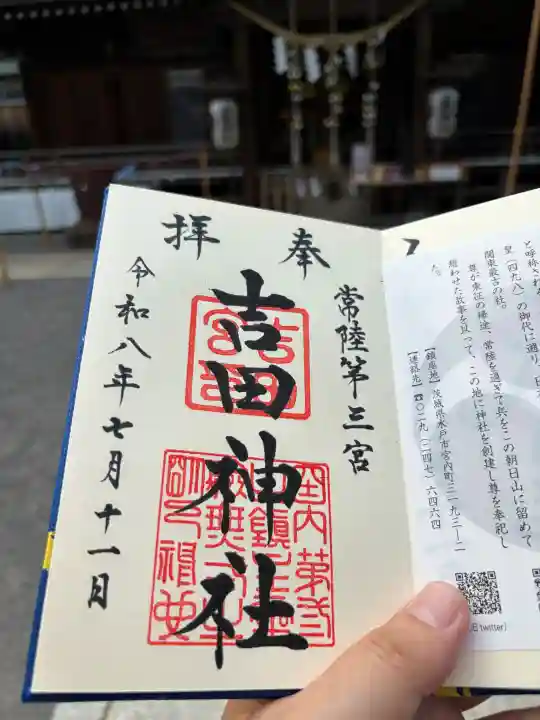 奉拝
常陸第三宮
吉田神社
令和八年七月十一日
と呼称され
皇(四九八)の御代に遡り、日本
関東最古の社。
尊が東征の帰途、常陸を過ぎて兵をこの朝日山に留めて
憩わせた故事を以って、この地に神社を創建し尊を奉祀し
た。
【鎮座地】茨城県水戸市宮内町三一九三―二
【連絡先】☎〇二九(二四七)六四六四
twitter)